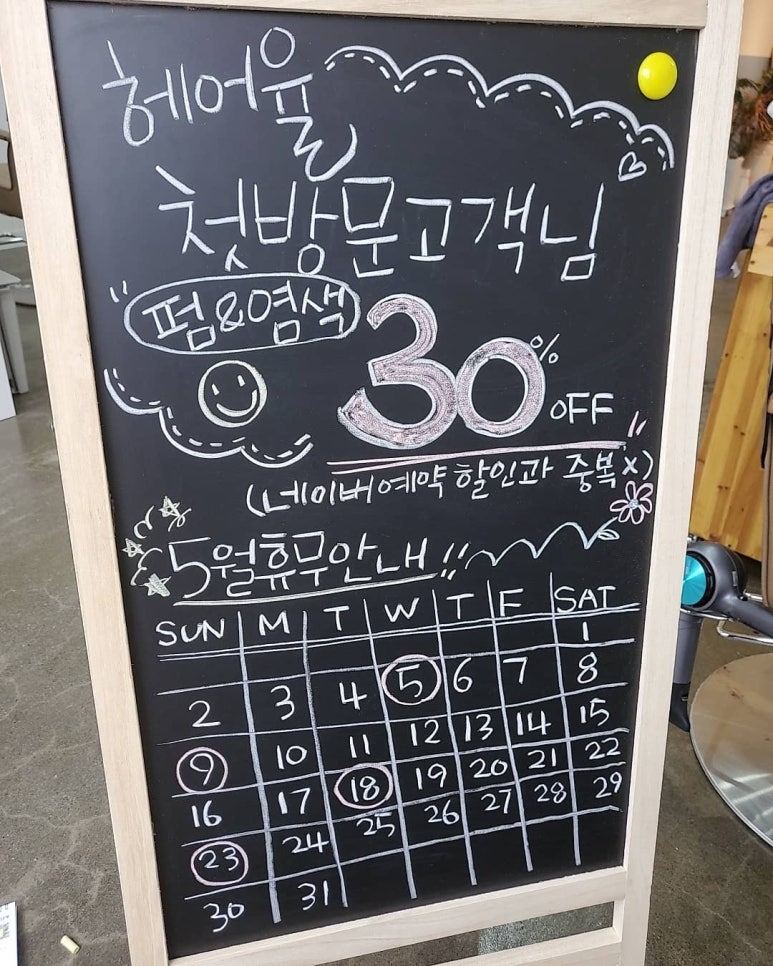 헤어율
첫방문고객님
"펌&염색 30% OFF"
(네이버예약 할인과 중복x)
5월휴무안내!!
SUN M T W T F SAT
1
2 3 4 5 6 7 8
9 10 11 12 13 14 15
16 17 18 19 20 21 22
23 24 25 26 27 28 29
30 31